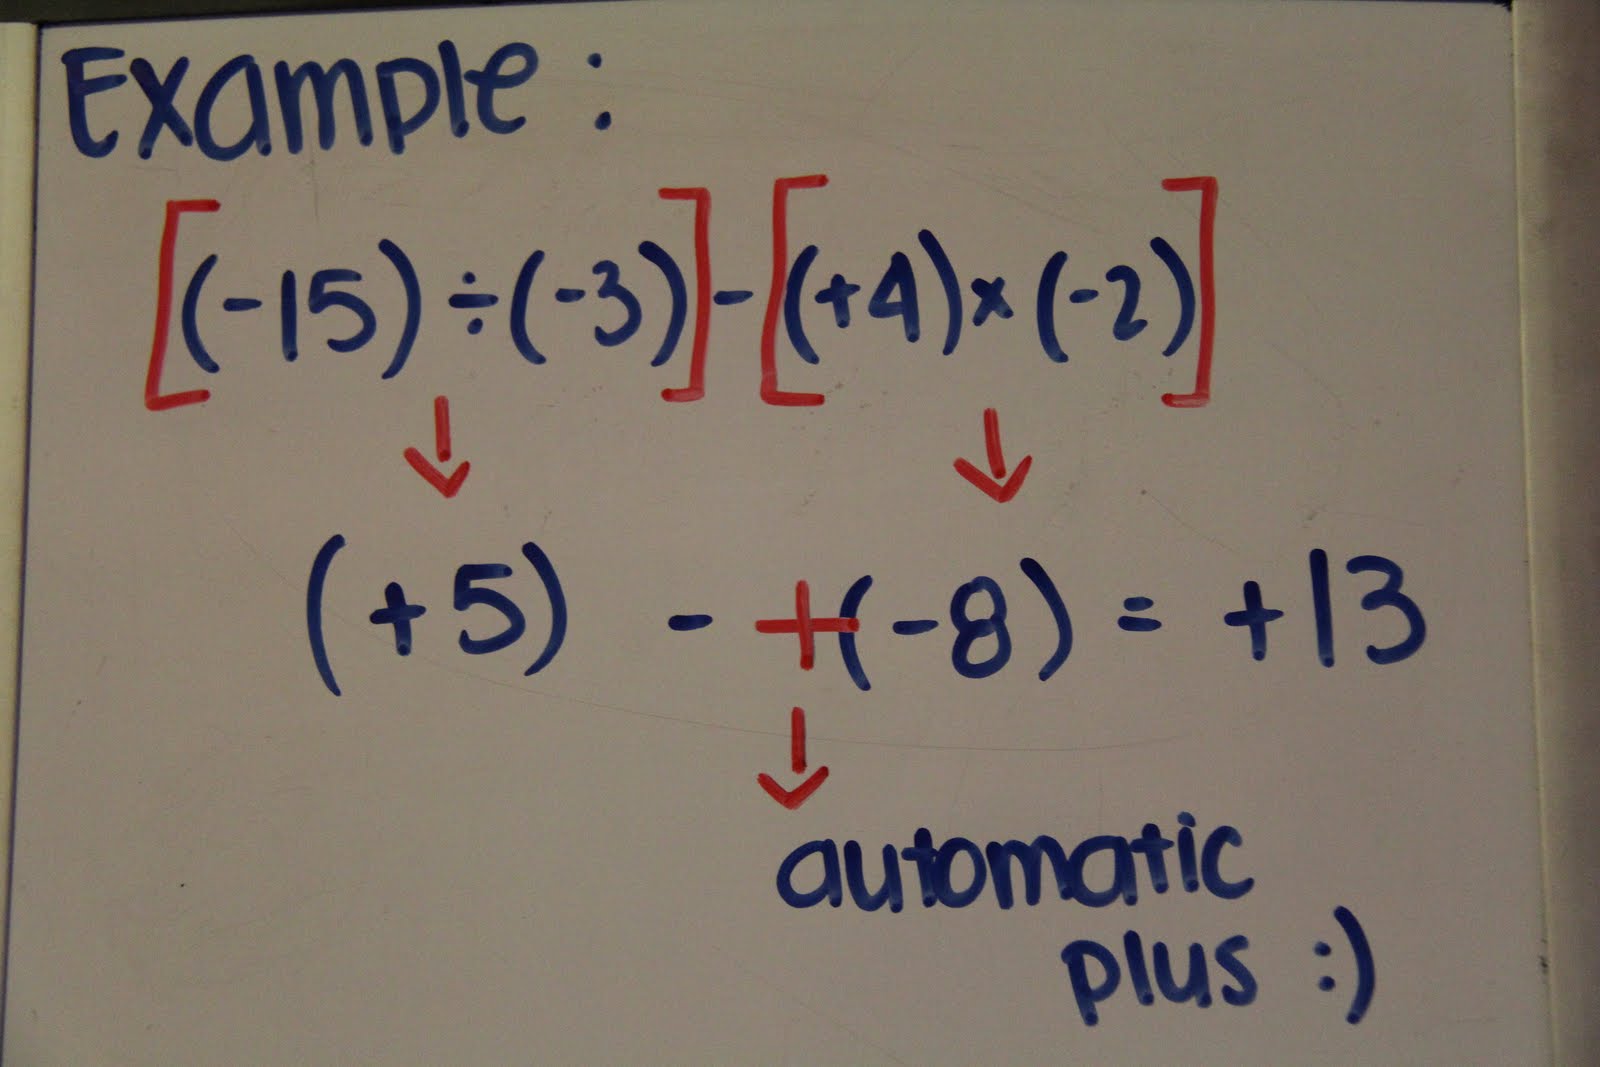 Example :
[(-15) ÷ (-3)] - [(+4) × (-2)]
(+5) - +(-8) = +13
automatic
plus :)